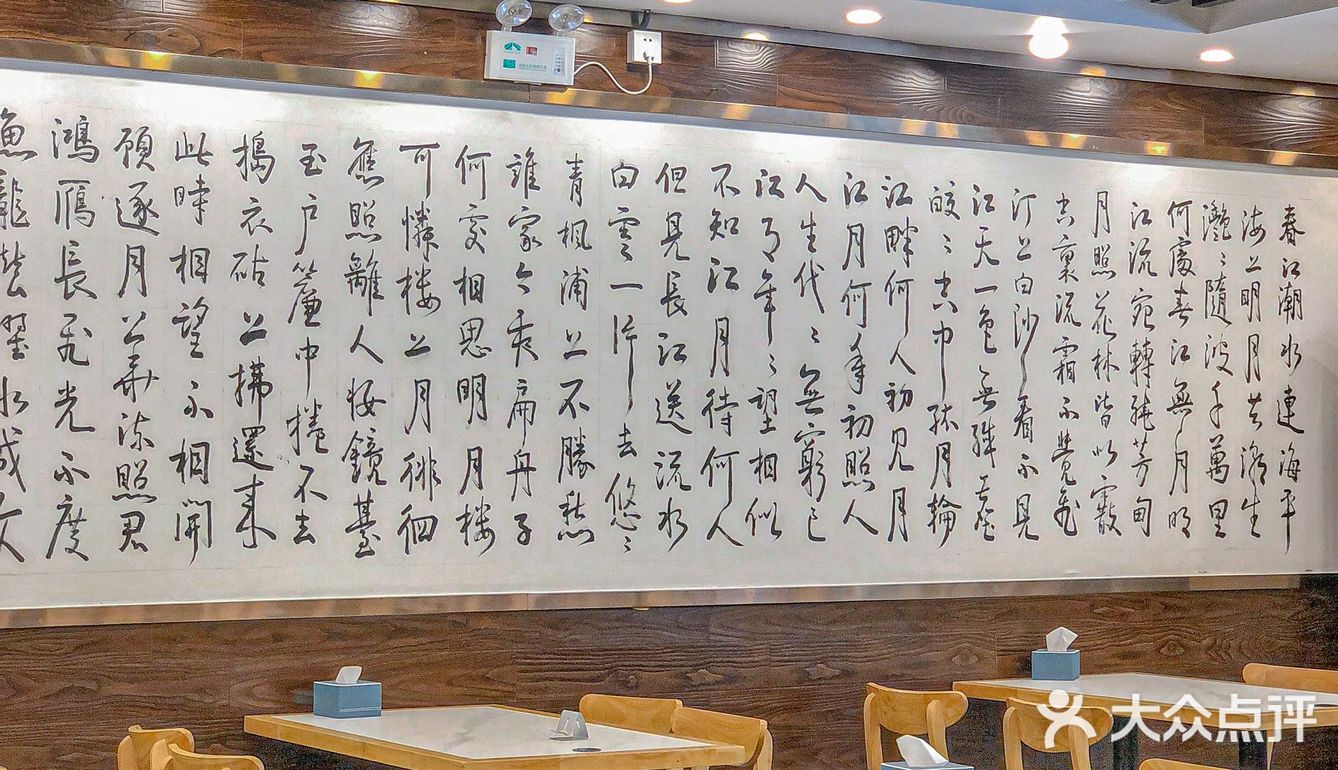 春江潮水連海平
海上明月共潮生
灩〻隨波千萬里
何處春江無月明
江流宛轉繞芳甸
月照花林皆似霰
空裏流霜不覺飛
汀上白沙看不見
江天一色無纖塵
皎〻空中孤月輪
江畔何人初見月
江月何年初照人
人生代〻無窮已
江月年〻望相似
不知江月待何人
但見長江送流水
白雲一片去悠〻
青楓浦上不勝愁
誰家今夜扁舟子
何處相思明月楼
可憐楼上月徘徊
應照離人妝鏡臺
玉戶簾中捲不去
搗衣砧上拂還來
此時相望不相聞
願逐月華流照君
鴻雁長飛光不度
魚龍潛躍水成文
大众点评